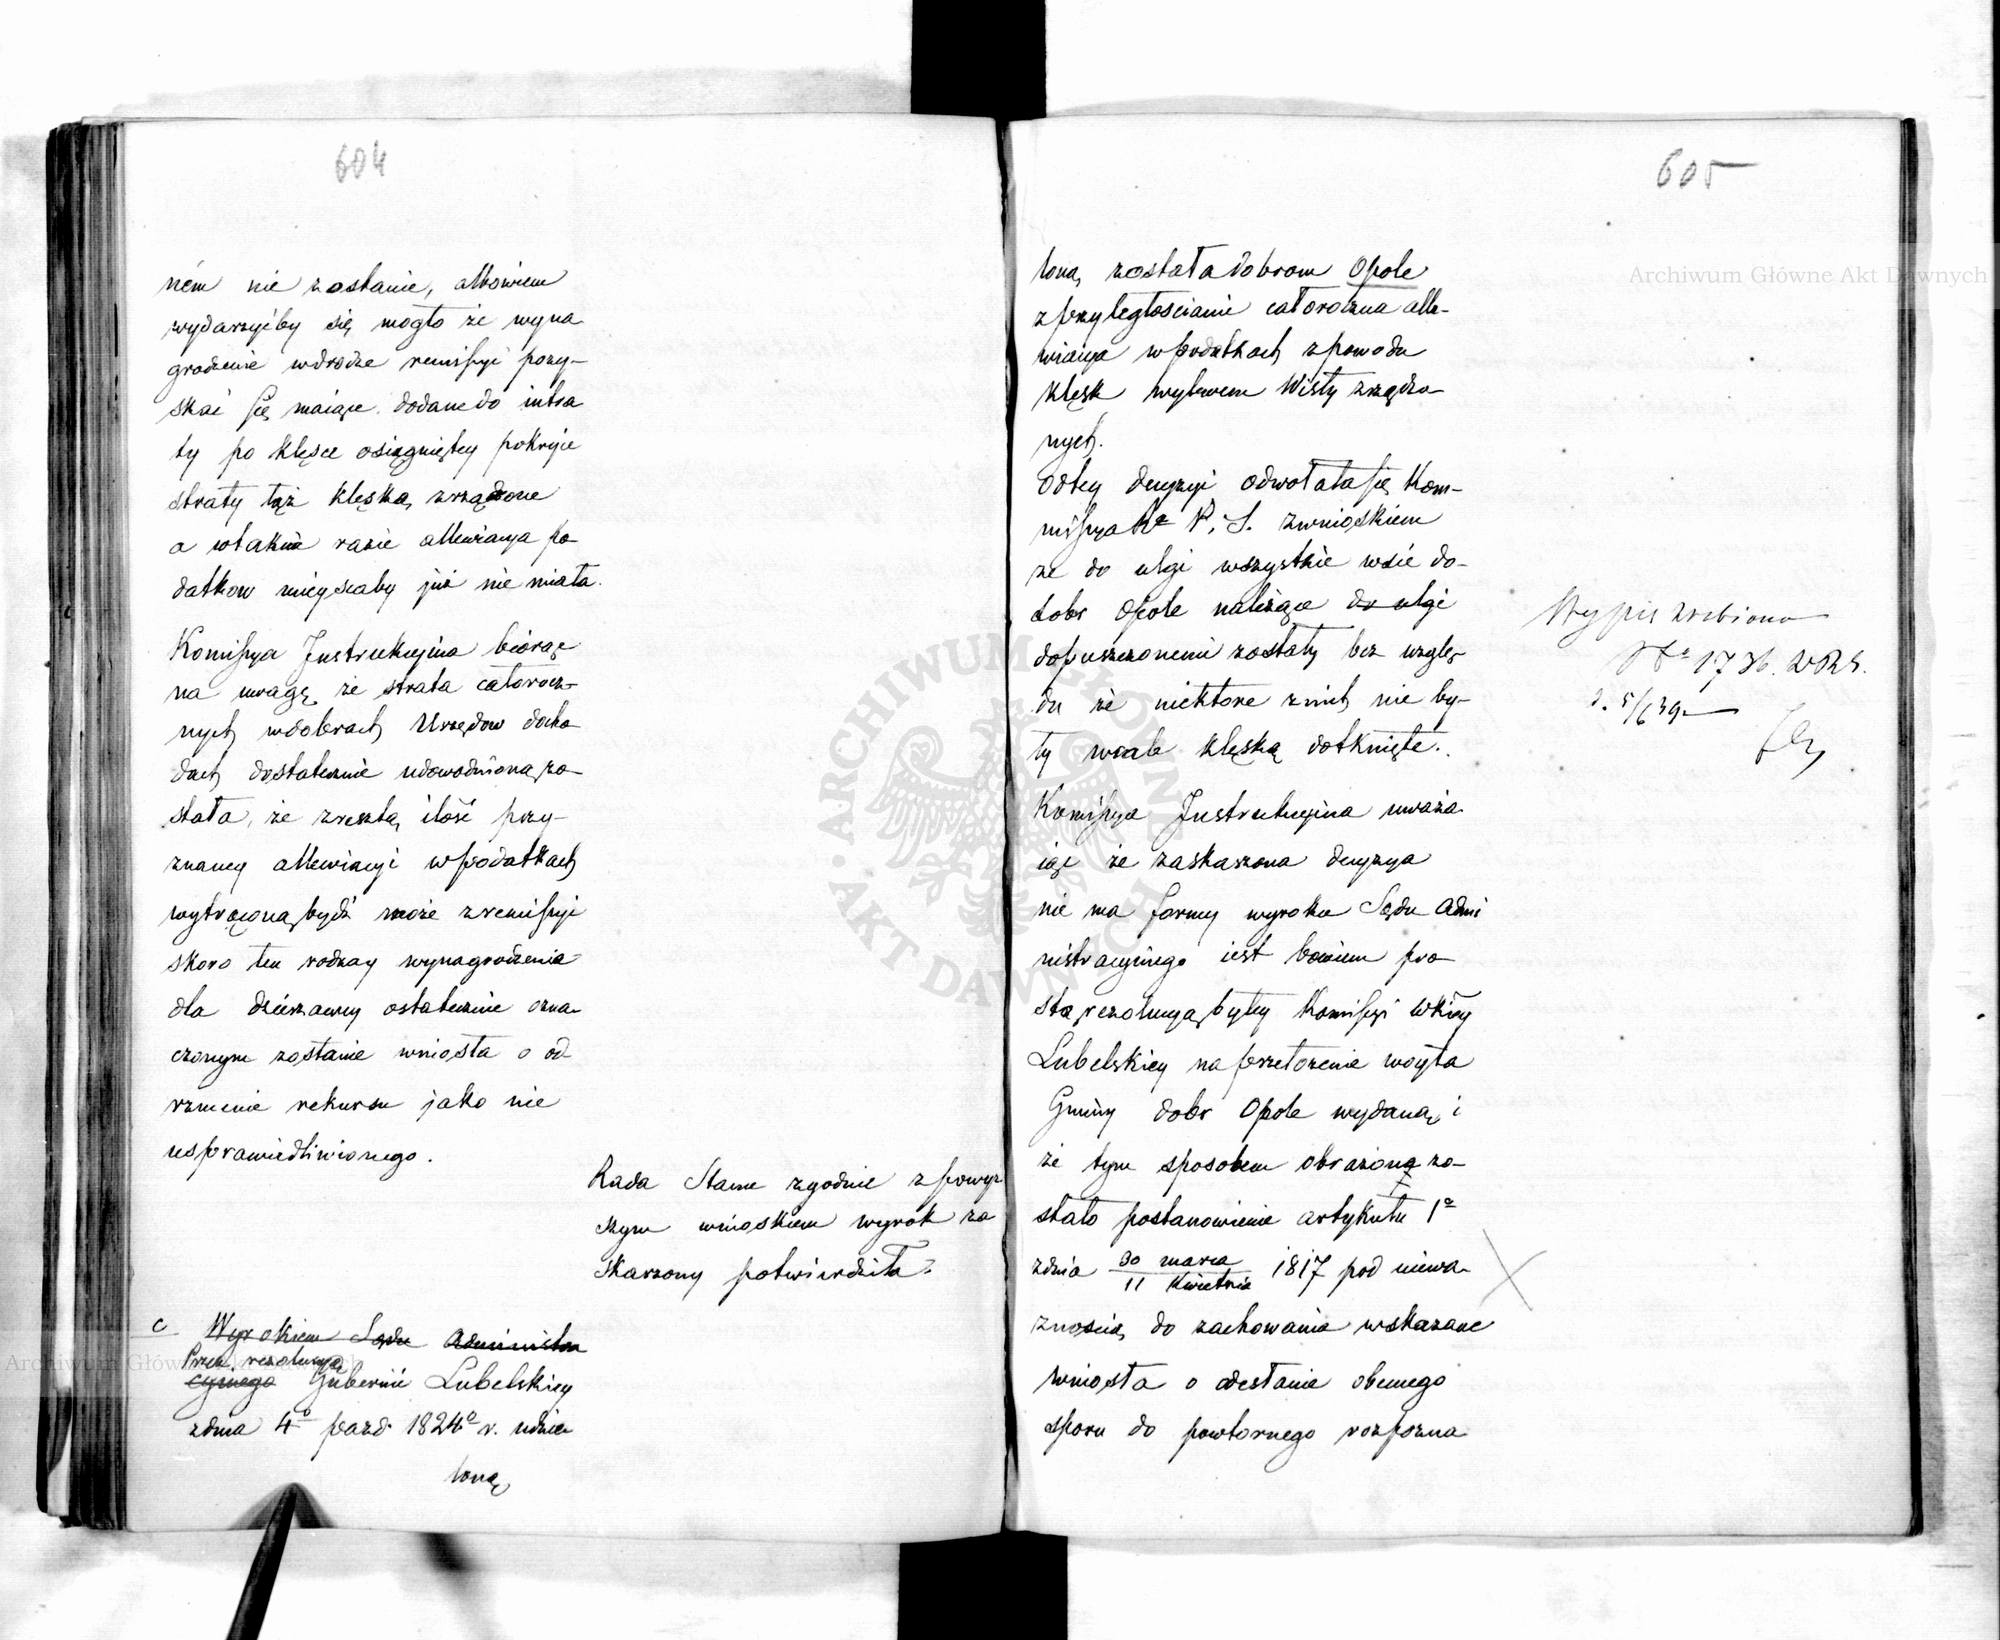 604
ném nie zostanie, albowiem
wydarzyćby się mogło że wyna
grodzenie wdrodze remissyi pozy-
skać się maiące dodane do intra
ty po klęsce osiągniętey pokryie
straty tąż klęską zrządzone
a wtakim razie allewiacya po
datkow mieyscaby już nie miała.
Komissya Instrukcyina biorąc
na uwagę że strata całorocz-
nych wdobrach Urzędow docho
dach dostatecznie udowodnioną zo-
stała, że zresztą ilość przy-
znaney allewiacyi wpodatkach
wytrąconą bydź może zremissyi
skoro ten rodzay wynagrodzenia
dla dzierzawcy ostatecznie ozna-
czonym zostanie wniosła o od
rzucenie rekursu jako nie
usprawiedliwionego.
Rada Stanu zgodnie z powyż
szym wnioskiem wyrok za
skarzony potwierdziła.
c Wyrokiem Sądu Administra
Przez rezolucyą
cyinego Gubernii Lubelskiey
zdnia 4º pazd 1824º r. udzie
loną
605
loną została dobrom Opole
z przyległościami całoroczna alle-
wiacya wpodatkach z powodu
klęsk wylewem Wisły zrządzo-
nych.
Odtey decyzyi odwołała się Kom-
missya Rª P. i S. zwnioskiem
że do ulgi wszystkie wsie do-
dobr Opole należące do ulgi
dopuszczonemi zostały bez wzglę-
du że niektore znich nie by-
ły wcale klęską dotknięte.
Komissya Instrukcyina uważa
iąc że zaskarzona decyzya
nie ma formy wyroku Sądu Admi
nistracyinego iest bowiem pro
stą rezolucyą byłey Komissyi Wkiey
Lubelskiey na przełożenie woyta
Gminy dobr Opole wydaną i
że tym sposobem obrażoną zo-
stało postanowienie artykułu 1º
zdnia 30 marca / 11 Kwietnia 1817 pod niewa-
znością do zachowania wskazane
wniosła o odesłanie obecnego
sporu do powtornego rozpozna
Wypis zrobiono
Nº 1736. WRS.
d. 5/6 39